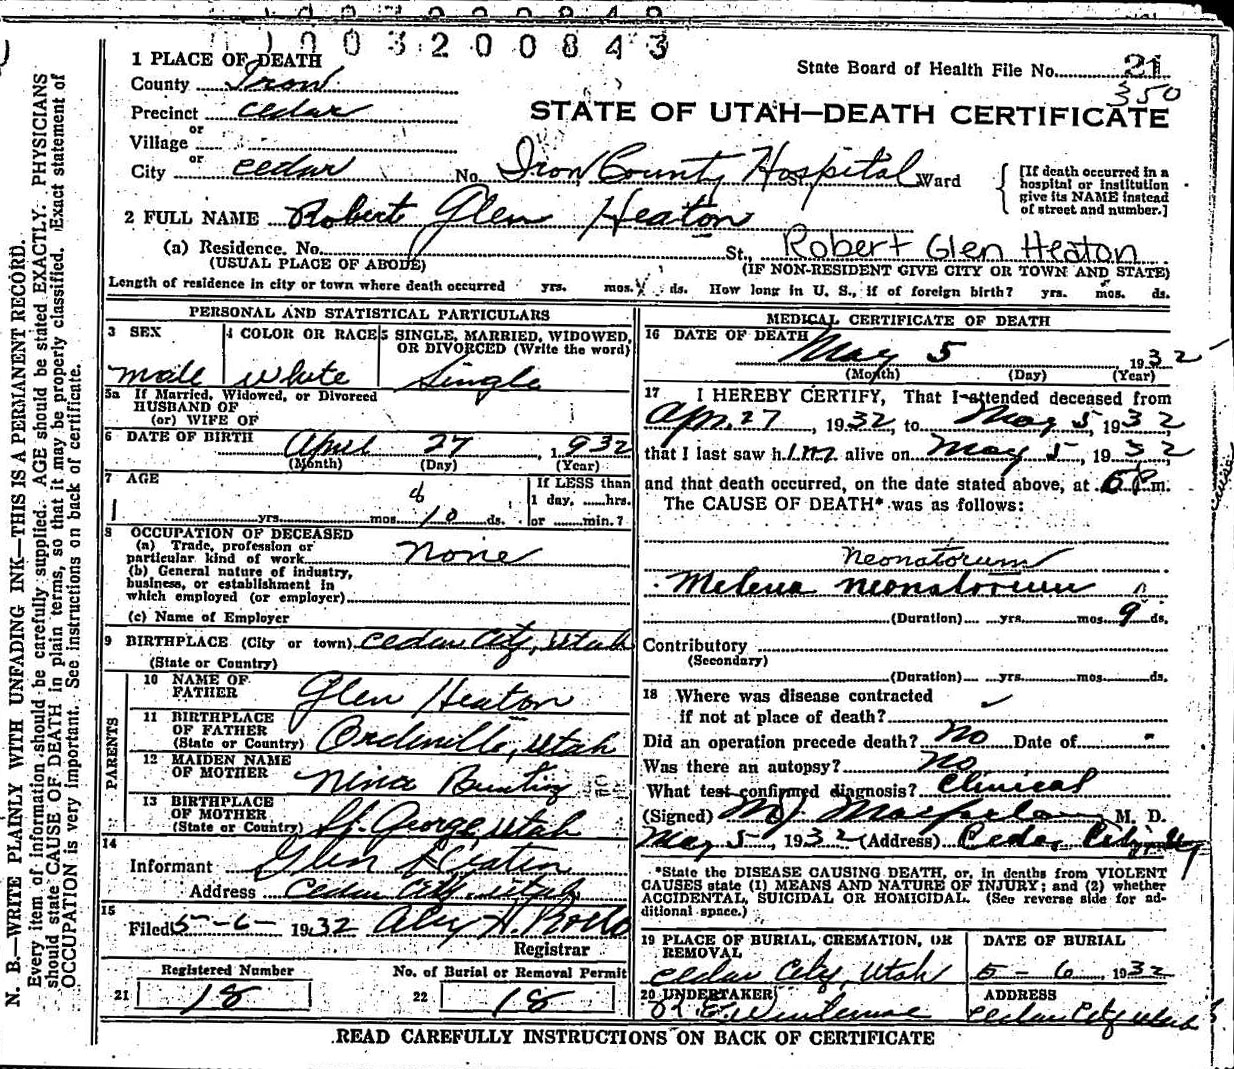 1003200843
1 PLACE OF DEATH
County Iron
State Board of Health File No. 21
350
Precinct Cedar
STATE OF UTAH—DEATH CERTIFICATE
or
Village
or
City Cedar No. Iron County Hospital St., Ward
[If death occurred in a hospital or institution give its NAME instead of street and number.]
2 FULL NAME Robert Glen Heaton
(a) Residence. No. St., Robert Glen Heaton
(USUAL PLACE OF ABODE) (IF NON-RESIDENT GIVE CITY OR TOWN AND STATE)
Length of residence in city or town where death occurred yrs. mos. ds. How long in U. S., if of foreign birth? yrs. mos. ds.
PERSONAL AND STATISTICAL PARTICULARS
3 SEX 4 COLOR OR RACE 5 SINGLE, MARRIED, WIDOWED,
OR DIVORCED (Write the word)
male white Single
5a If Married, Widowed, or Divorced
HUSBAND OF
(or) WIFE OF
6 DATE OF BIRTH April 27, 1932
(Month) (Day) (Year)
7 AGE If LESS than
8 1 day, ......hrs.
yrs. mos. 10 ds. or ......min.?
8 OCCUPATION OF DECEASED
(a) Trade, profession or
particular kind of work none
(b) General nature of industry,
business, or establishment in
which employed (or employer)
(c) Name of Employer
9 BIRTHPLACE (City or town) Cedar City, Utah
(State or Country)
PARENTS
10 NAME OF
FATHER Glen Heaton
11 BIRTHPLACE
OF FATHER
(State or Country) Orderville, Utah
12 MAIDEN NAME
OF MOTHER Nina Bunting
13 BIRTHPLACE
OF MOTHER
(State or Country) St. George, Utah
14
Informant Glen Heaton
Address Cedar City, Utah
15
Filed 5-6-1932
Registrar
Registered Number No. of Burial or Removal Permit
21 18 22 18
MEDICAL CERTIFICATE OF DEATH
16 DATE OF DEATH
May 5 1932
(Month) (Day) (Year)
17 I HEREBY CERTIFY, That I attended deceased from
Apr. 27, 1932, to May 5, 1932,
that I last saw him alive on May 5, 1932
and that death occurred, on the date stated above, at P m.
The CAUSE OF DEATH* was as follows:
Neonatorum
Melena neonatorum
(Duration) yrs. mos. 9 ds.
Contributory
(Secondary)
(Duration) yrs. mos. ds.
18 Where was disease contracted
if not at place of death?
Did an operation precede death? No Date of "
Was there an autopsy? No
What test confirmed diagnosis? Clinical
(Signed) M.J. Macfarlane, M. D.
May 5, 1932 (Address) Cedar City, Ut
*State the DISEASE CAUSING DEATH, or, in deaths from VIOLENT
CAUSES state (1) MEANS AND NATURE OF INJURY; and (2) whether
ACCIDENTAL, SUICIDAL OR HOMICIDAL. (See reverse side for ad-
ditional space.)
19 PLACE OF BURIAL, CREMATION, OR
REMOVAL
Cedar City, Utah
DATE OF BURIAL
5-6, 1932
20 UNDERTAKER
ADDRESS
Cedar City Utah
READ CAREFULLY INSTRUCTIONS ON BACK OF CERTIFICATE
N. B.—WRITE PLAINLY WITH UNFADING INK—THIS IS A PERMANENT RECORD.
Every item of information should be carefully supplied. AGE should be stated EXACTLY. PHYSICIANS
should state CAUSE OF DEATH in plain terms, so that it may be properly classified. Exact statement of
OCCUPATION is very important. See instructions on back of certificate.